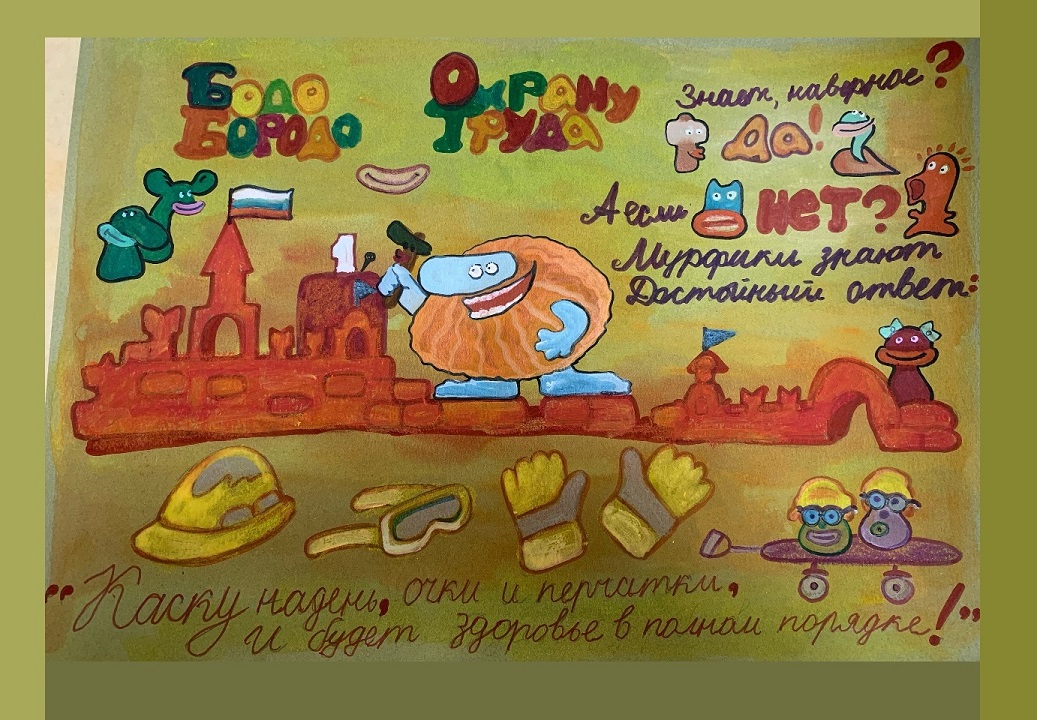 Бодо
Бородо
Охрану
Труда
Знает, наверное?
Да!
А если нет?
Мурфики знают
Достойный ответ:
1
"Каску надень, очки и перчатки,
и будет здоровье в полном порядке!"